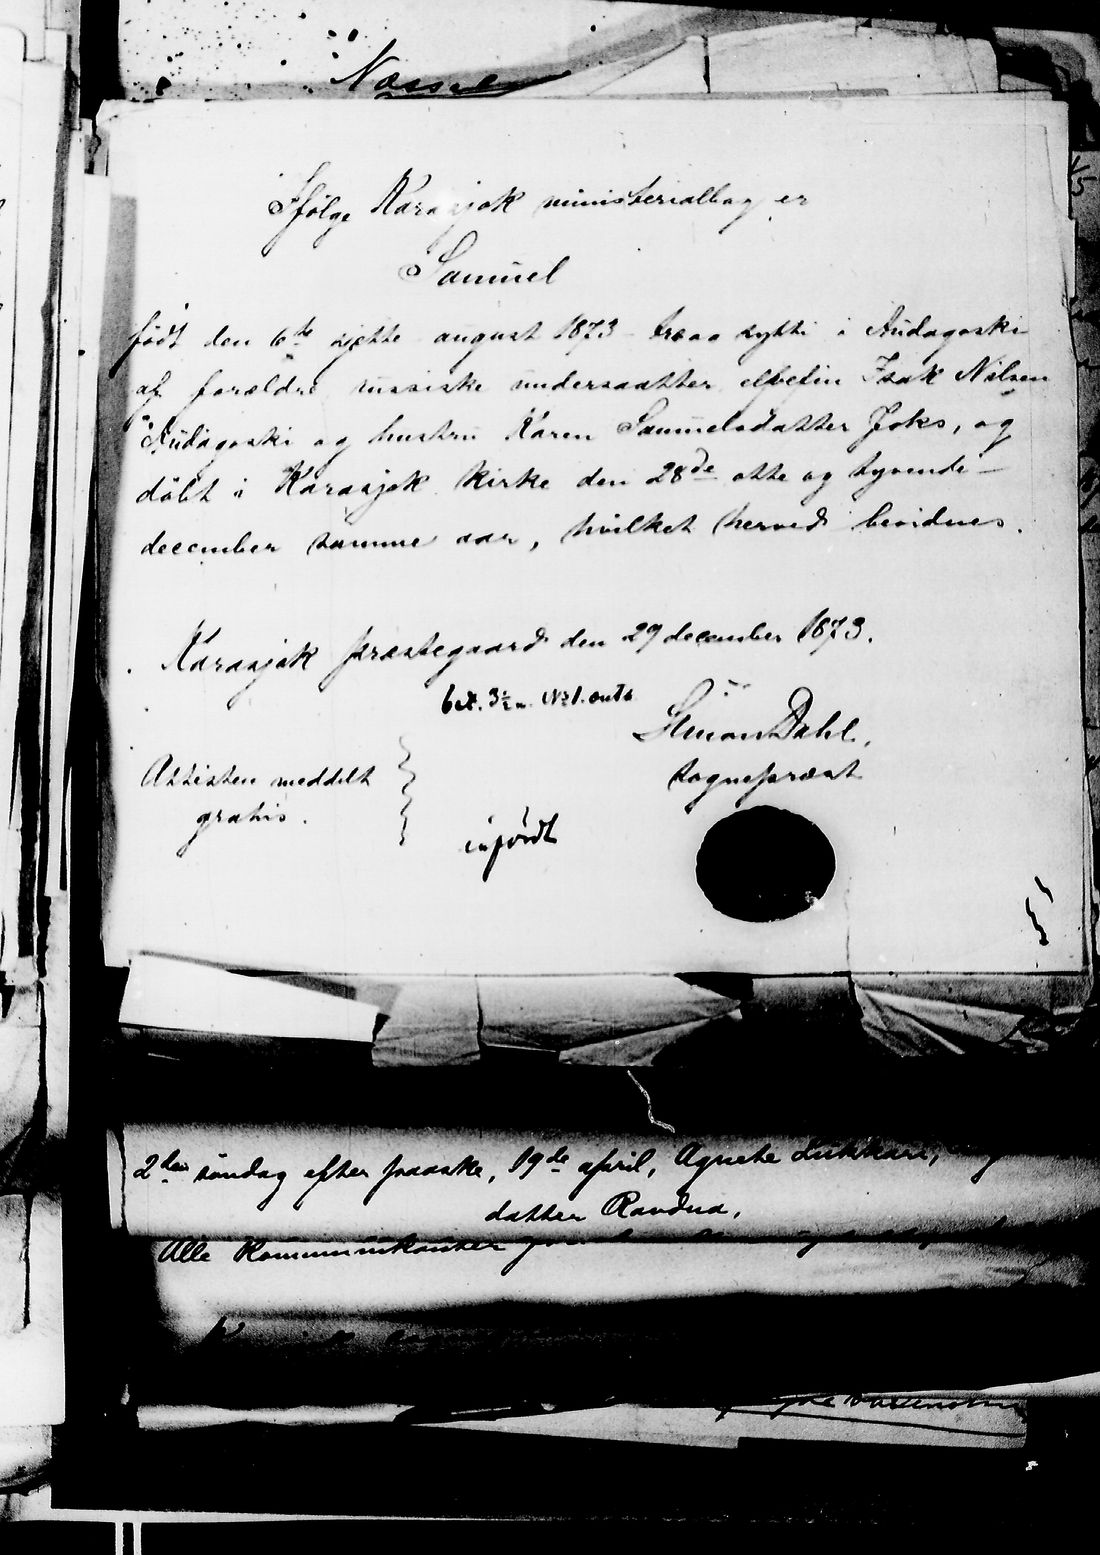 Ifölge Karasjok ministerialbog er
Samuel
født den 6te sjette august 1873 treog sytti i Audagoski
af forældre russiske undersaatter elvefin Isak Nilsen
Audagoski og hustru Karen Samuelsdatter Joks, og
döbt i Karasjok kirke den 28de otte og tyvende
december samme aar, hvilket herved bevidnes.
Karasjok præstegaard den 29 december 1873.
Simon Dahl,
Attesten meddelt
sognepræst
gratis.
infördt
2den söndag efter paaske, 19de april, Agnete Lukkari,
datter Ravdna.
Alle Kommunikanter